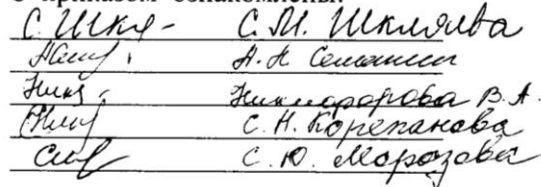 с приказом ознакомлены:
С. Шкл- С. М. Шкляева
А. Н.
Ник, Никифорова В. А.
С. Н. Корепанова
С. Ю. Морозова